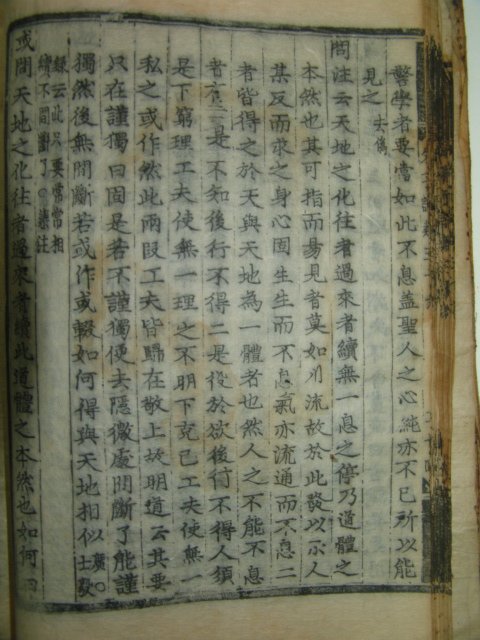 警學者要當如此不息蓋聖人之心純亦不已所以能
見之 士毅
問注云天地之化往者過來者續無一息之停乃道體之
本然也其可指而易見者莫如川流故於此發以示人
某反而求之身心固生生而不息氣亦流通而不息二
者皆得之於天與天地為一體者也然人之不能不息
者有二一是不知後行不得二是役於欲後行不得人須
是下窮理工夫使無一理之不明下克己工夫使無一
私之或作然此兩段工夫皆歸在敬上故明道云其要
只在謹獨曰固是若不謹獨便去隱微處間斷了能謹
獨然後無間斷若或作或輟如何得與天地相似 廣○士毅
錄云此只要常常相
續不間斷了○集注
或問天地之化往者過來者續此道體之本然也如何曰